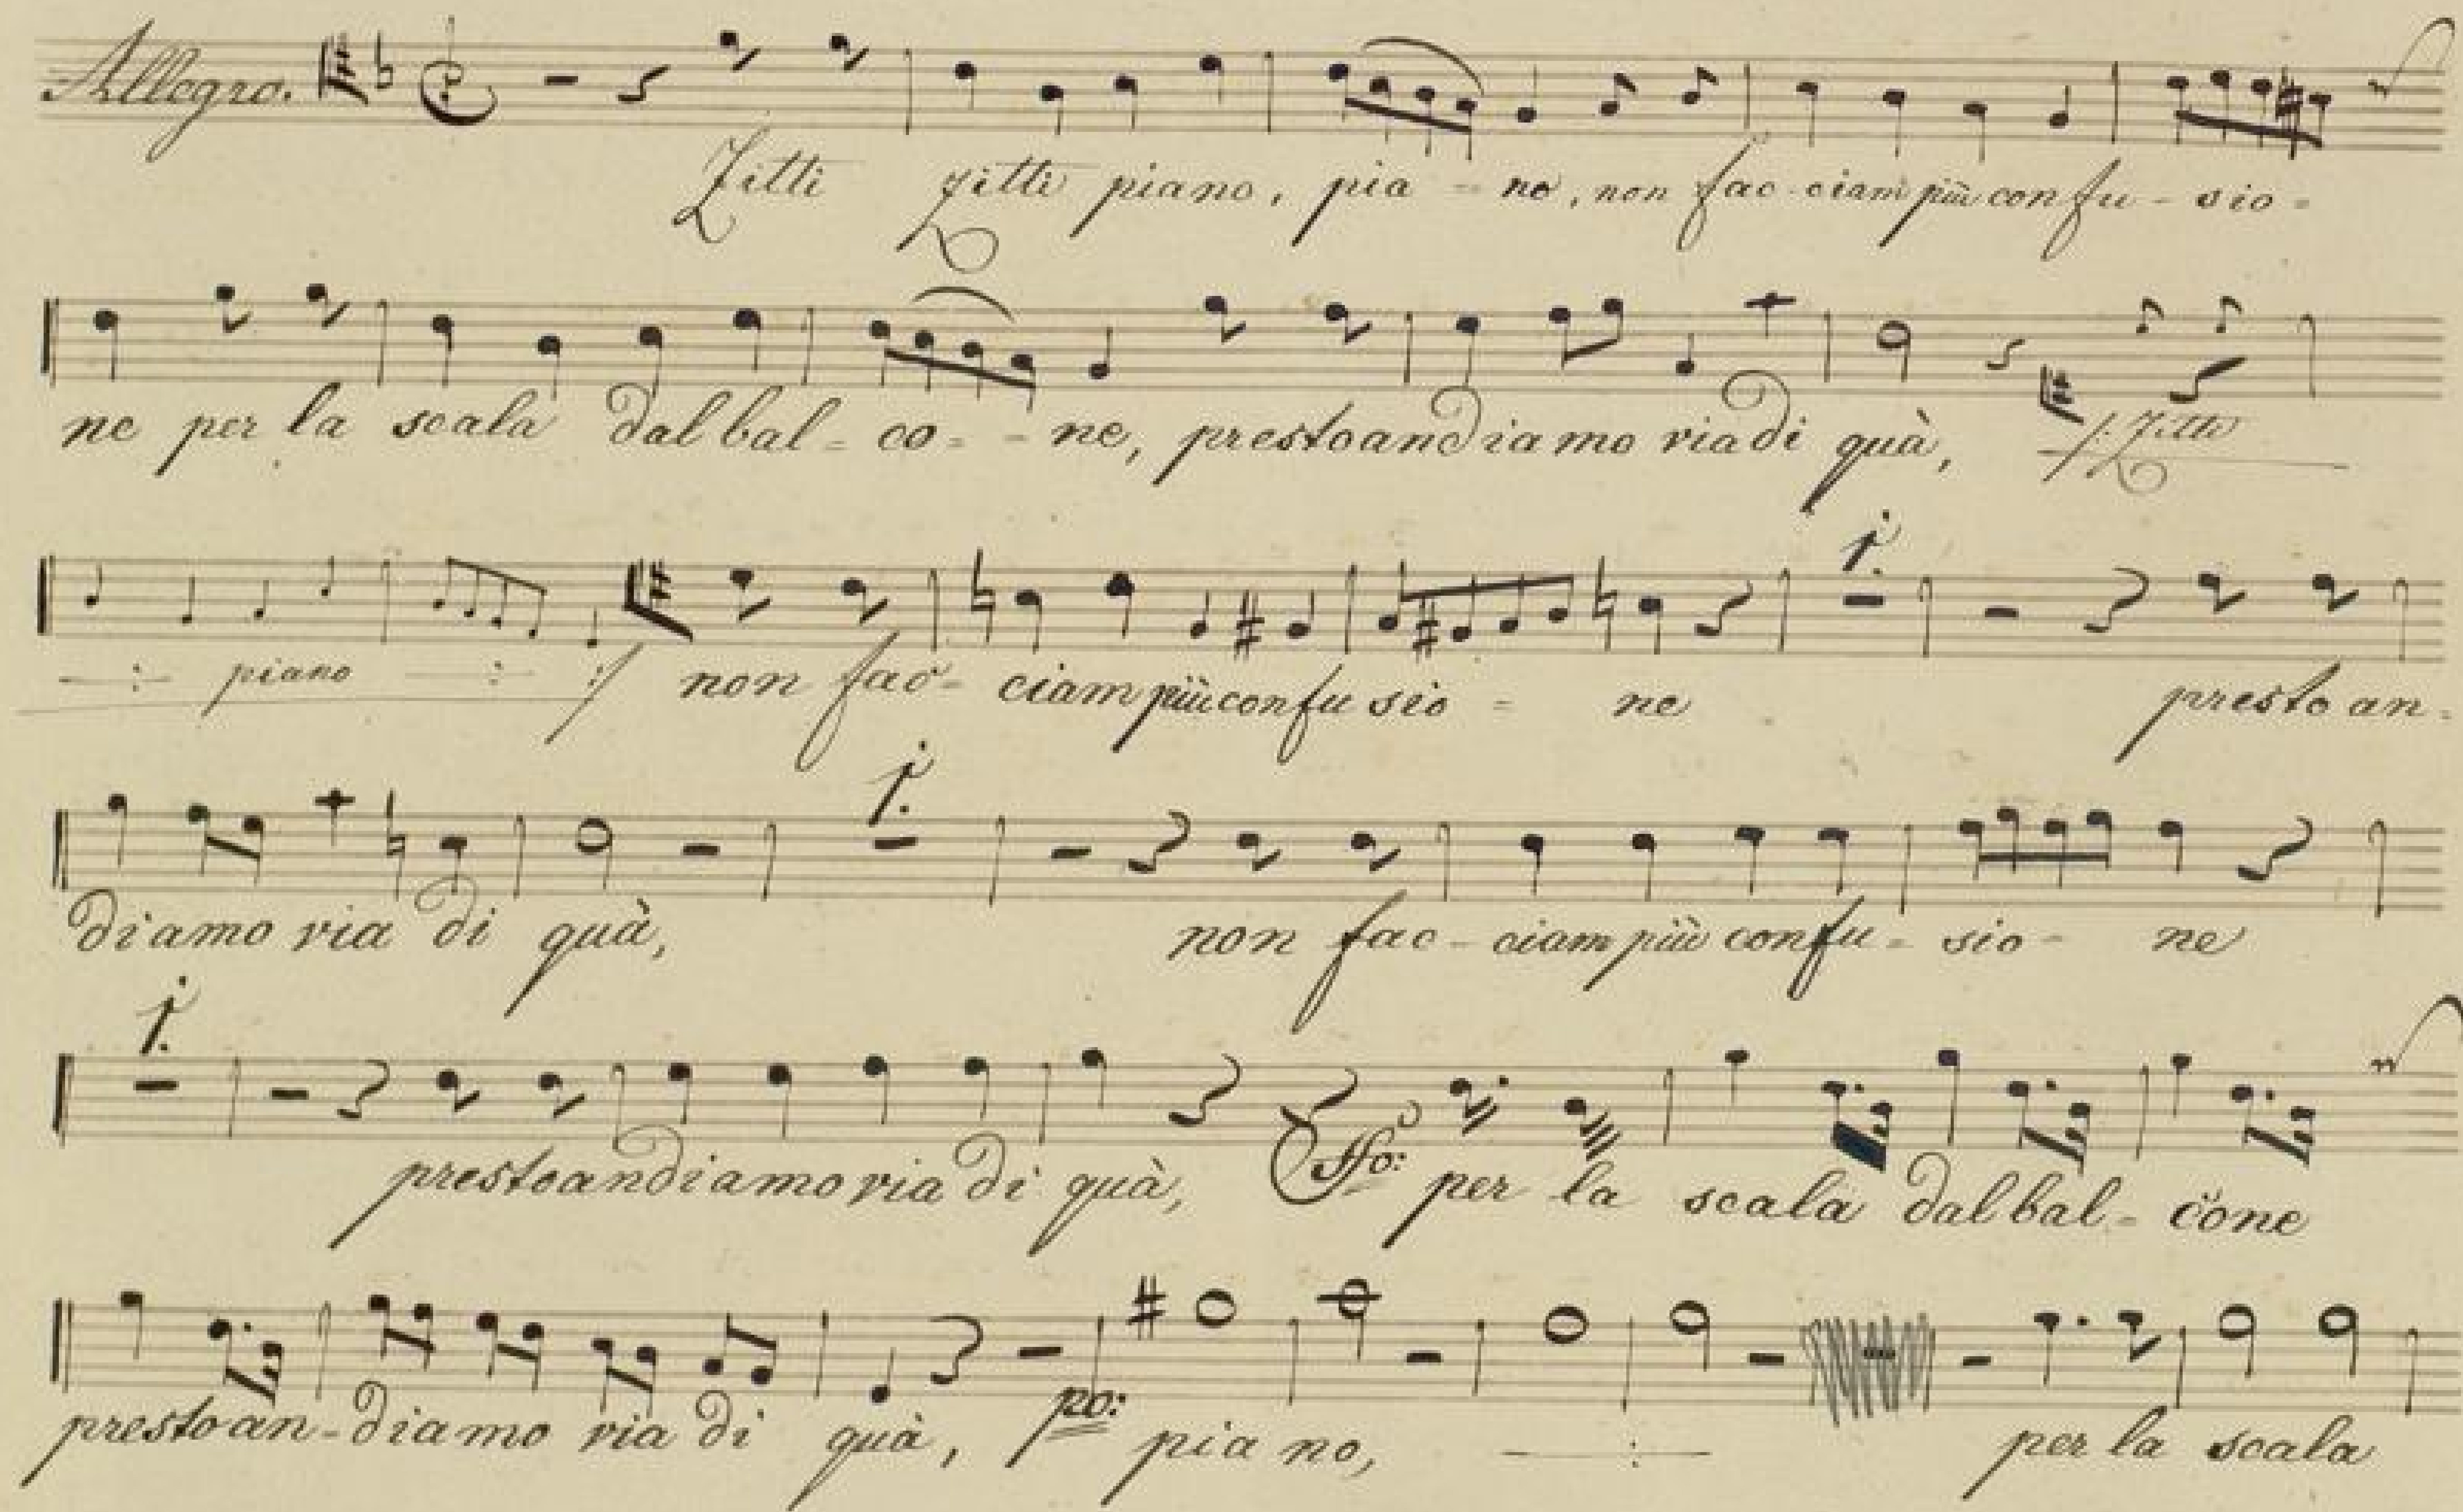 Allegro.
Zitti zitti piano, pia - no, non fac - ciam più confu - sio =
ne per la scala dal bal = co = - ne, presto andiamo via di quà, /: Zitti
— : — piano — : — :/ non fac = ciam più confu sio = ne presto an =
1.
diamo via di quà, non fac - ciam più confu = sio - ne
1.
1.
presto andiamo via di quà, ffo: per la scala dal bal = cone
presto an - diamo via di quà, po: piano, — : — per la scala